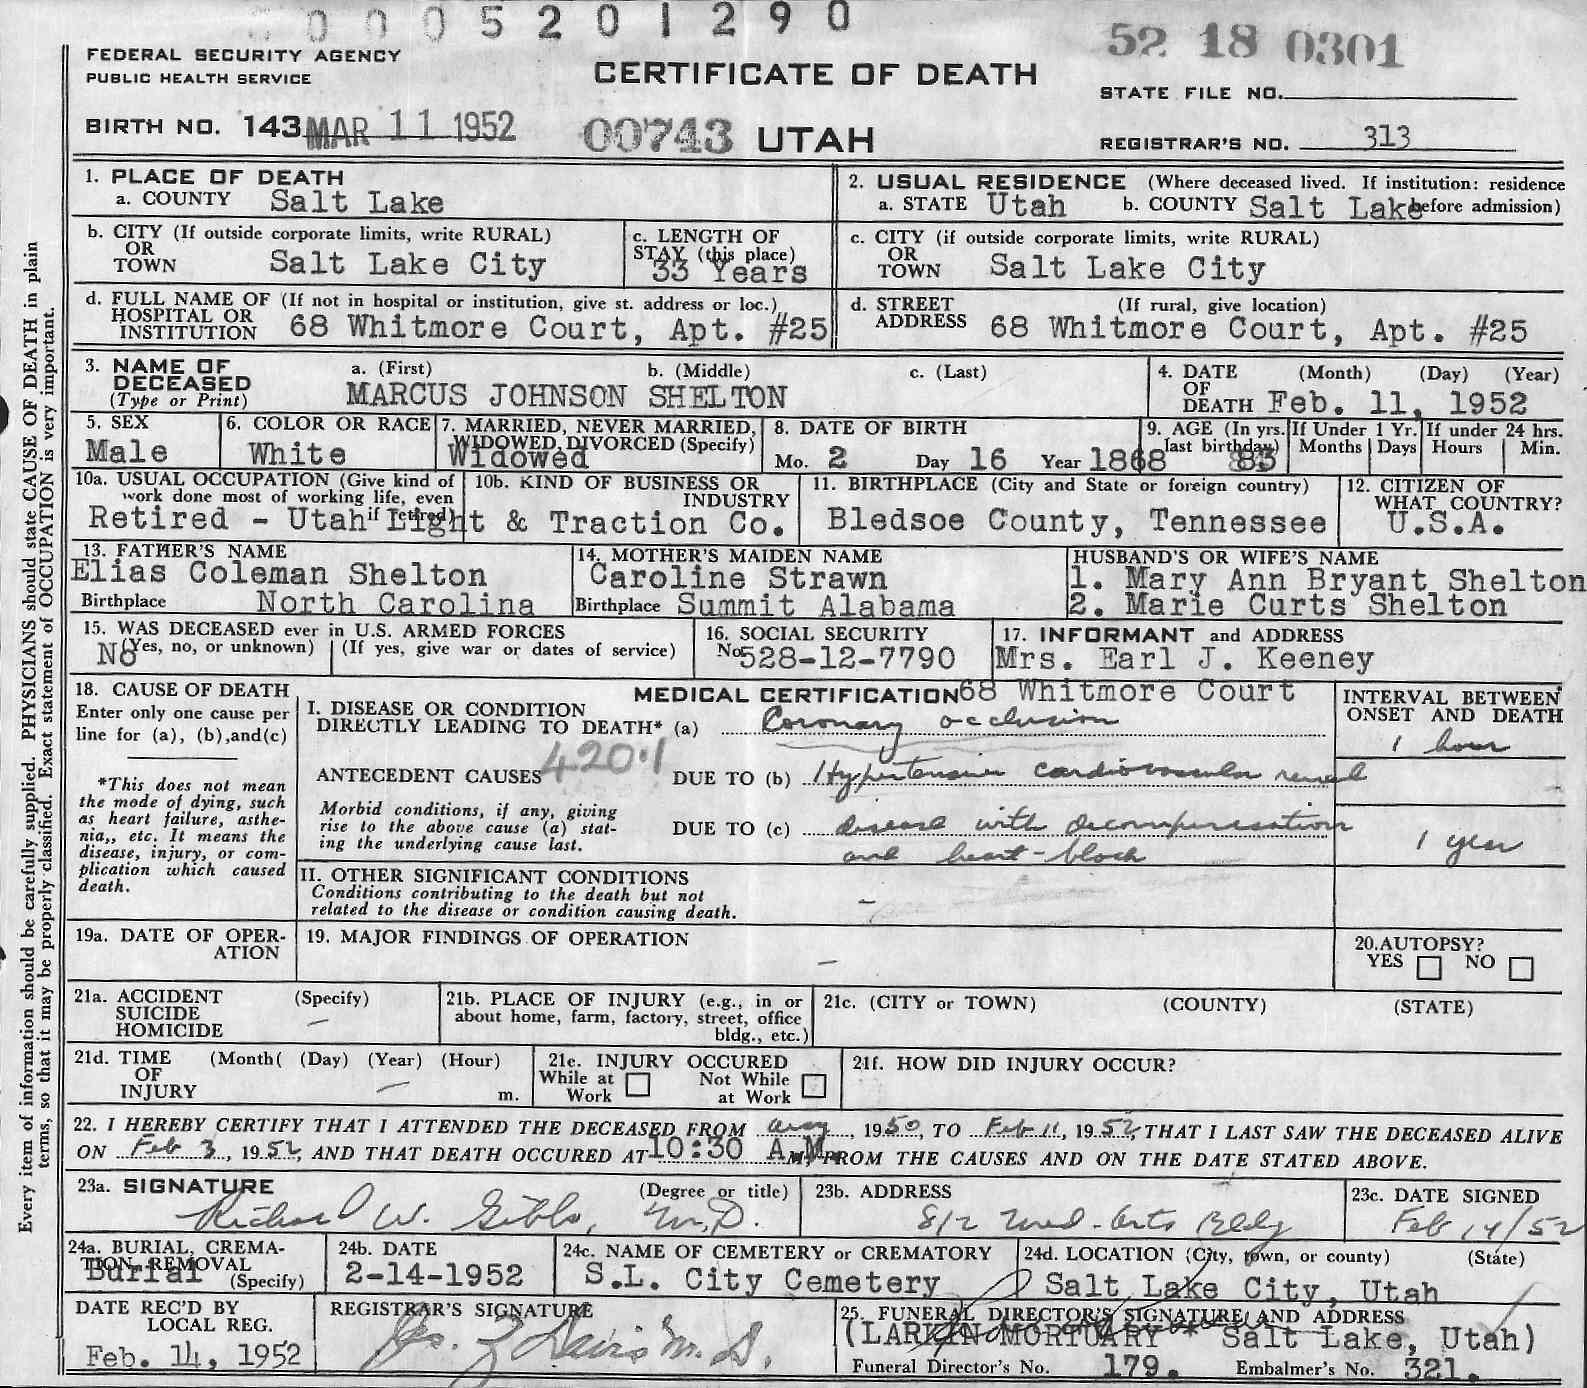 0005201290
52 18 0301
FEDERAL SECURITY AGENCY
PUBLIC HEALTH SERVICE
CERTIFICATE OF DEATH
STATE FILE NO.
BIRTH NO. 143 MAR 11 1952 00743 UTAH
REGISTRAR'S NO. 313
Every item of information should be carefully supplied. PHYSICIANS should state CAUSE OF DEATH in plain
terms, so that it may be properly classified. Exact statement of OCCUPATION is very important.
1. PLACE OF DEATH
a. COUNTY Salt Lake
2. USUAL RESIDENCE (Where deceased lived. If institution: residence
a. STATE Utah b. COUNTY Salt Lake before admission)
b. CITY (If outside corporate limits, write RURAL)
OR
TOWN Salt Lake City
c. LENGTH OF
STAY (this place)
33 Years
c. CITY (if outside corporate limits, write RURAL)
OR
TOWN Salt Lake City
d. FULL NAME OF (If not in hospital or institution, give st. address or loc.)
HOSPITAL OR
INSTITUTION 68 Whitmore Court, Apt. #25
d. STREET (If rural, give location)
ADDRESS 68 Whitmore Court, Apt. #25
3. NAME OF a. (First) b. (Middle) c. (Last)
DECEASED
(Type or Print) MARCUS JOHNSON SHELTON
4. DATE (Month) (Day) (Year)
OF
DEATH Feb. 11, 1952
5. SEX
Male
6. COLOR OR RACE
White
7. MARRIED, NEVER MARRIED,
WIDOWED, DIVORCED (Specify)
Widowed
8. DATE OF BIRTH
Mo. 2 Day 16 Year 1868
9. AGE (In yrs.
last birthday) 83
If Under 1 Yr.
Months Days
If under 24 hrs.
Hours Min.
10a. USUAL OCCUPATION (Give kind of
work done most of working life, even
if retired)
10b. KIND OF BUSINESS OR
INDUSTRY
Retired - Utah Light & Traction Co.
11. BIRTHPLACE (City and State or foreign country)
Bledsoe County, Tennessee
12. CITIZEN OF
WHAT COUNTRY?
U.S.A.
13. FATHER'S NAME
Elias Coleman Shelton
Birthplace North Carolina
14. MOTHER'S MAIDEN NAME
Caroline Strawn
Birthplace Summit Alabama
HUSBAND'S OR WIFE'S NAME
1. Mary Ann Bryant Shelton
2. Marie Curts Shelton
15. WAS DECEASED ever in U.S. ARMED FORCES
No (Yes, no, or unknown) (If yes, give war or dates of service)
16. SOCIAL SECURITY
No 528-12-7790
17. INFORMANT and ADDRESS
Mrs. Earl J. Keeney
68 Whitmore Court
18. CAUSE OF DEATH
Enter only one cause per
line for (a), (b), and (c)
*This does not mean
the mode of dying, such
as heart failure, asthe-
nia,, etc. It means the
disease, injury, or com-
plication which caused
death.
MEDICAL CERTIFICATION
I. DISEASE OR CONDITION
DIRECTLY LEADING TO DEATH* (a) Coronary occlusion
INTERVAL BETWEEN
ONSET AND DEATH
1 hour
420.1
ANTECEDENT CAUSES DUE TO (b) Hypertensive cardiovascular renal
Morbid conditions, if any, giving
rise to the above cause (a) stat-
ing the underlying cause last.
DUE TO (c) disease with decompensation
and heart-block
1 year
II. OTHER SIGNIFICANT CONDITIONS
Conditions contributing to the death but not
related to the disease or condition causing death.
–
19a. DATE OF OPER-
ATION
19. MAJOR FINDINGS OF OPERATION
–
20. AUTOPSY?
YES NO
21a. ACCIDENT (Specify)
SUICIDE
HOMICIDE –
21b. PLACE OF INJURY (e.g., in or
about home, farm, factory, street, office
bldg., etc.)
21c. (CITY or TOWN) (COUNTY) (STATE)
21d. TIME (Month( (Day) (Year) (Hour)
OF
INJURY – m.
21e. INJURY OCCURED
While at Work Not While at Work
21f. HOW DID INJURY OCCUR?
22. I HEREBY CERTIFY THAT I ATTENDED THE DECEASED FROM 1950, TO Feb 11, 1952, THAT I LAST SAW THE DECEASED ALIVE
ON Feb 3, 1952, AND THAT DEATH OCCURED AT 10:30 A.M. M., FROM THE CAUSES AND ON THE DATE STATED ABOVE.
23a. SIGNATURE (Degree or title)
Richard W. Gibbs, M.D.
23b. ADDRESS
812 Med-Arts Bldg
23c. DATE SIGNED
Feb 14/52
24a. BURIAL, CREMA-
TION, REMOVAL
Burial (Specify)
24b. DATE
2-14-1952
24c. NAME OF CEMETERY or CREMATORY
S.L. City Cemetery
24d. LOCATION (City, town, or county) (State)
Salt Lake City, Utah
DATE REC'D BY
LOCAL REG.
Feb. 14, 1952
REGISTRAR'S SIGNATURE
Davis M.D.
25. FUNERAL DIRECTOR'S SIGNATURE AND ADDRESS
(LARKIN MORTUARY * Salt Lake, Utah)
Funeral Director's No. 179. Embalmer's No. 321.